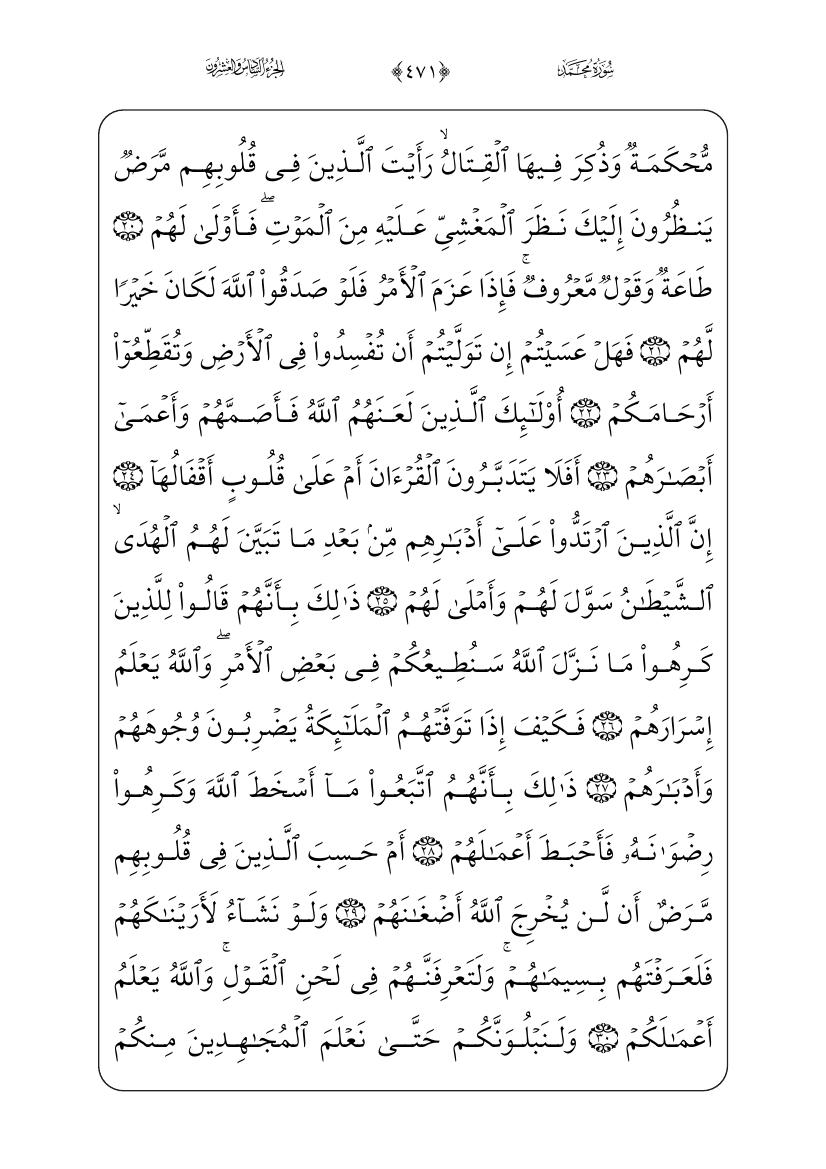 سُورَةُ مُحَمَّد ﴿٤٧١﴾ الجُزْءُ السَّادِسُ وَالعِشْرُونَ
مُّحۡكَمَةٌ وَذُكِرَ فِيهَا ٱلۡقِتَالُۙ رَأَيۡتَ ٱلَّذِينَ فِى قُلُوبِهِم مَّرَضٌ
يَنظُرُونَ إِلَيۡكَ نَظَرَ ٱلۡمَغۡشِىِّ عَلَيۡهِ مِنَ ٱلۡمَوۡتِۖ فَأَوۡلَىٰ لَهُمۡ ٢٠
طَاعَةٌ وَقَوۡلٌ مَّعۡرُوفٌۚ فَإِذَا عَزَمَ ٱلۡأَمۡرُ فَلَوۡ صَدَقُواْ ٱللَّهَ لَكَانَ خَيۡرًا
لَّهُمۡ ٢١ فَهَلۡ عَسَيۡتُمۡ إِن تَوَلَّيۡتُمۡ أَن تُفۡسِدُواْ فِى ٱلۡأَرۡضِ وَتُقَطِّعُوٓاْ
أَرۡحَامَكُمۡ ٢٢ أُوْلَٰٓئِكَ ٱلَّذِينَ لَعَنَهُمُ ٱللَّهُ فَأَصَمَّهُمۡ وَأَعۡمَىٰٓ
أَبۡصَٰرَهُمۡ ٢٣ أَفَلَا يَتَدَبَّرُونَ ٱلۡقُرۡءَانَ أَمۡ عَلَىٰ قُلُوبٍ أَقۡفَالُهَآ ٢٤
إِنَّ ٱلَّذِينَ ٱرۡتَدُّواْ عَلَىٰٓ أَدۡبَٰرِهِم مِّنۢ بَعۡدِ مَا تَبَيَّنَ لَهُمُ ٱلۡهُدَىۙ
ٱلشَّيۡطَٰنُ سَوَّلَ لَهُمۡ وَأَمۡلَىٰ لَهُمۡ ٢٥ ذَٰلِكَ بِأَنَّهُمۡ قَالُواْ لِلَّذِينَ
كَرِهُواْ مَا نَزَّلَ ٱللَّهُ سَنُطِيعُكُمۡ فِى بَعۡضِ ٱلۡأَمۡرِۖ وَٱللَّهُ يَعۡلَمُ
إِسۡرَارَهُمۡ ٢٦ فَكَيۡفَ إِذَا تَوَفَّتۡهُمُ ٱلۡمَلَٰٓئِكَةُ يَضۡرِبُونَ وُجُوهَهُمۡ
وَأَدۡبَٰرَهُمۡ ٢٧ ذَٰلِكَ بِأَنَّهُمُ ٱتَّبَعُواْ مَآ أَسۡخَطَ ٱللَّهَ وَكَرِهُواْ
رِضۡوَٰنَهُۥ فَأَحۡبَطَ أَعۡمَٰلَهُمۡ ٢٨ أَمۡ حَسِبَ ٱلَّذِينَ فِى قُلُوبِهِم
مَّرَضٌ أَن لَّن يُخۡرِجَ ٱللَّهُ أَضۡغَٰنَهُمۡ ٢٩ وَلَوۡ نَشَآءُ لَأَرَيۡنَٰكَهُمۡ
فَلَعَرَفۡتَهُم بِسِيمَٰهُمۡۚ وَلَتَعۡرِفَنَّهُمۡ فِى لَحۡنِ ٱلۡقَوۡلِۚ وَٱللَّهُ يَعۡلَمُ
أَعۡمَٰلَكُمۡ ٣٠ وَلَنَبۡلُوَنَّكُمۡ حَتَّىٰ نَعۡلَمَ ٱلۡمُجَٰهِدِينَ مِنكُمۡ